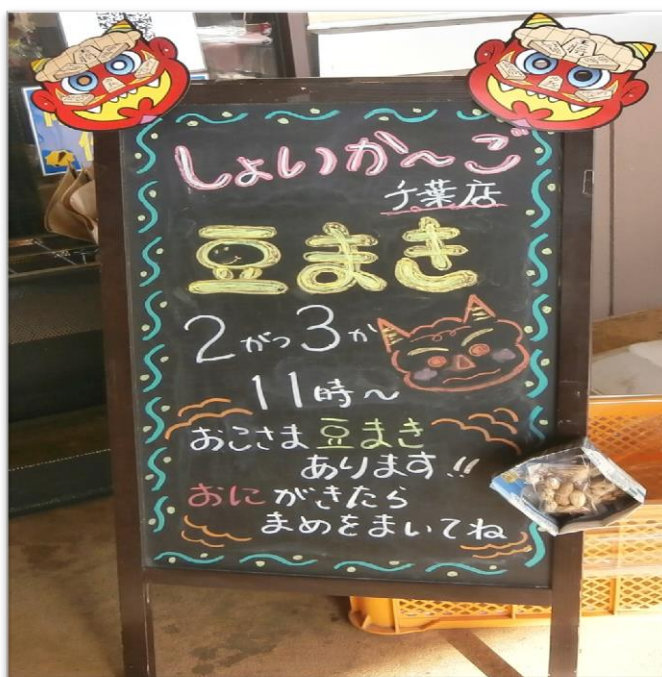 しょいか〜ご
千葉店
豆まき
2がつ3か
11時〜
おこさま豆まき
あります!!
おにがきたら
まめをまいてね